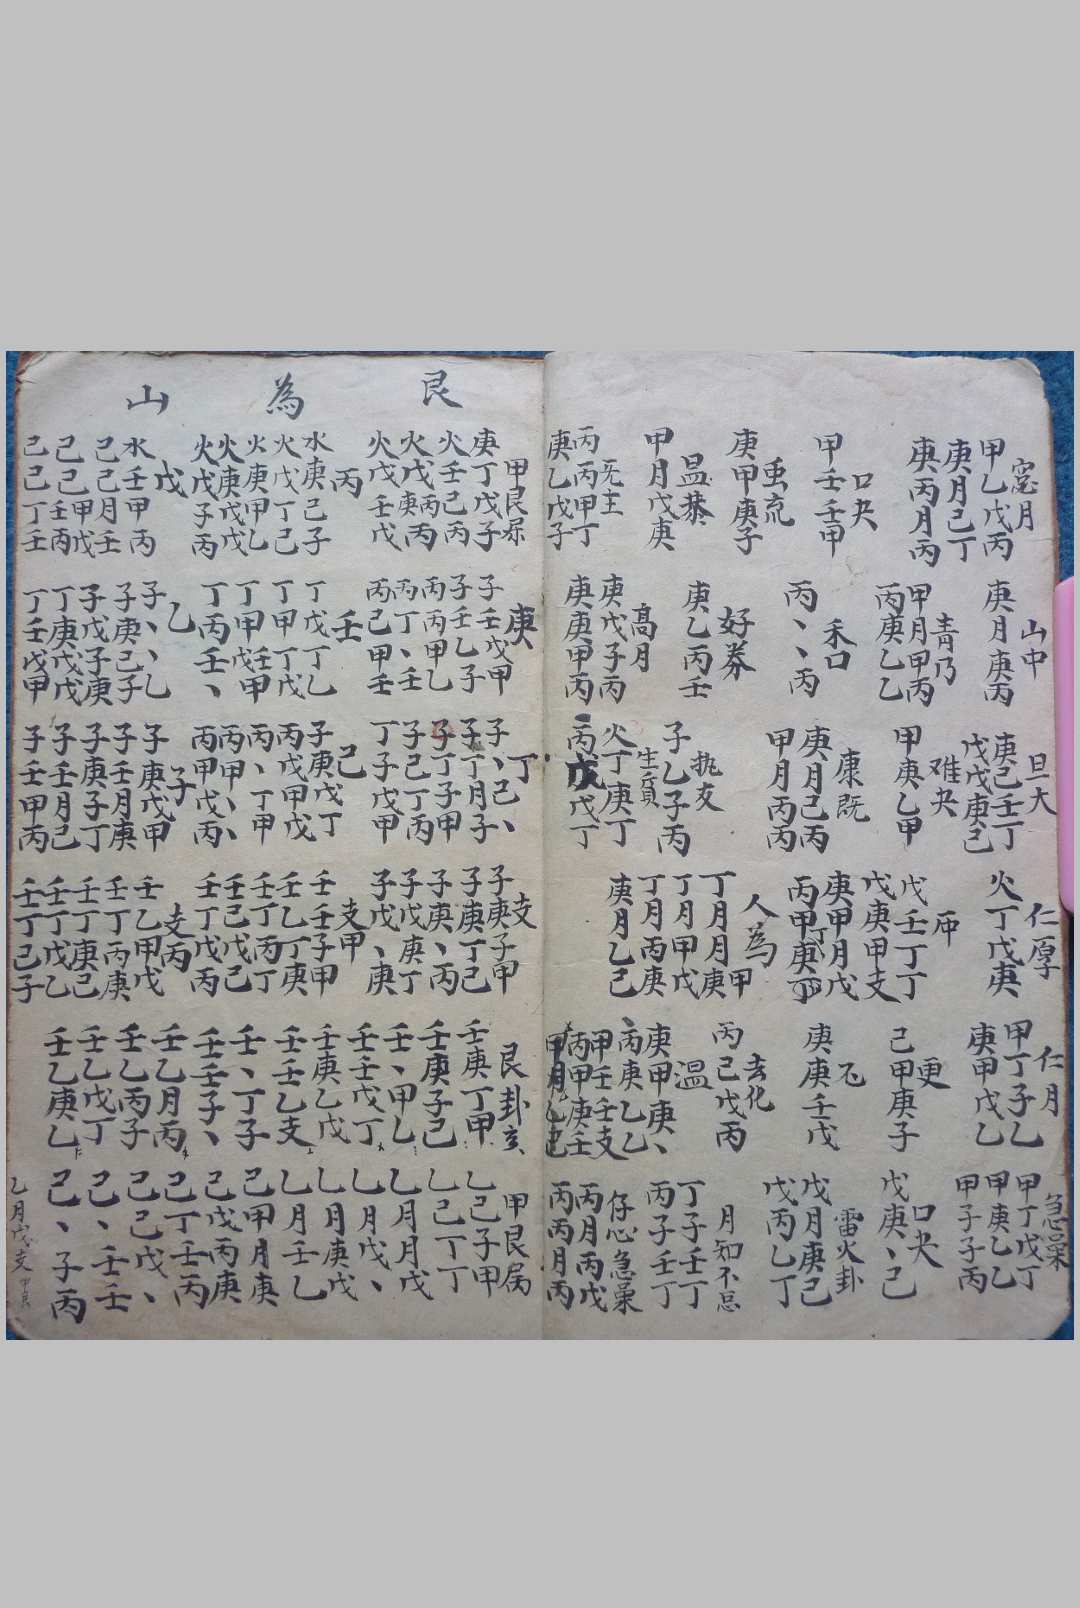 窓月
甲乙戊丙
庚月己丁
庚丙月丙
口夬
甲壬壬甲
虫流
庚甲庚子
昷恭
甲月戊庚
旡主
丙丙甲丁
庚乙戊子
山中
庚月庚丙
青乃
甲月甲丙
丙庚乙乙
禾口
丙、、丙
好券
庚乙丙壬
高月
庚戊子丙
庚庚甲丙
旦大
庚己壬丁
戊戊庚己
难夬
甲庚乙甲
康既
庚月己丙
甲月丙丙
执友
子乙子丙
生員
火丁庚丁
丙戊戊丁
仁厚
火丁戊庚
戊壬丁丁
戊庚甲支
庚甲月戊
人為
丁月月庚甲
丁月甲戊
丁月丙庚
庚月乙己
仁月
甲丁子乙
庚甲戊乙
更
己甲庚子
庚庚壬戊
去化
丙己戊丙
温
庚甲庚、
丙庚乙乙
甲壬壬支
丙甲庚壬
急杲
甲丁戊丁
甲庚乙乙
甲子子丙
口夬
戊庚、己
雷火卦
戊月庚己
戊丙乙丁
月知不忌
丁子壬丁
丙子壬丁
仔心急杲
丙月丙戊
丙丙月丙
艮為山
甲艮尿
庚丁戊子
火壬己丙
火戊丙丙
火戊庚丙
火戊壬戊
丙
水庚己子
火戊丁己
火庚甲乙
火庚戊戊
火戊子丙
戊
水壬甲丙
己己月壬
己己甲戊
己己丁壬
庚
子壬戊甲
子壬乙子
丙丙甲乙
丙丁、壬
丙己甲壬
壬
丁戊丁乙
丁甲丁戊
丁甲壬甲
丁丙壬、
乙
子、、乙
子庚己子
子戊子庚
丁庚戊戊
丁壬戊甲
丁
子、己、
子丁月子
子丁子甲
子己丁丙
丁子戊甲
己
子庚戊丁
丙戊甲戊
丙、丁甲
丙甲、、
丙甲戊丙
子
子庚戊甲
子壬月庚
子庚子丁
子壬月己
子壬甲丙
支
子庚子甲
子庚丁己
子庚、丙
子戊庚丁
子戊、庚
支甲
壬壬子甲
壬乙丁庚
壬丁丙丁
壬己戊己
壬丁戊丙
支丙
壬乙甲戊
壬丁丙庚
壬丁庚己
壬丁戊乙
壬丁己子
艮卦亥
壬庚丁甲
壬庚子己
壬、甲乙
壬壬戊丁
壬庚乙戊
壬壬乙支
壬、丁子
壬壬子、
壬乙月丙
壬乙丙子
壬乙戊丁
壬乙庚乙
甲艮属
乙己子甲
乙己丁丁
乙月月戊
乙月戊、
乙月庚戊
乙月壬乙
己甲月庚
己戊丙庚
己丁壬丙
己己戊、
己、壬壬
己、子丙
乙月戊支